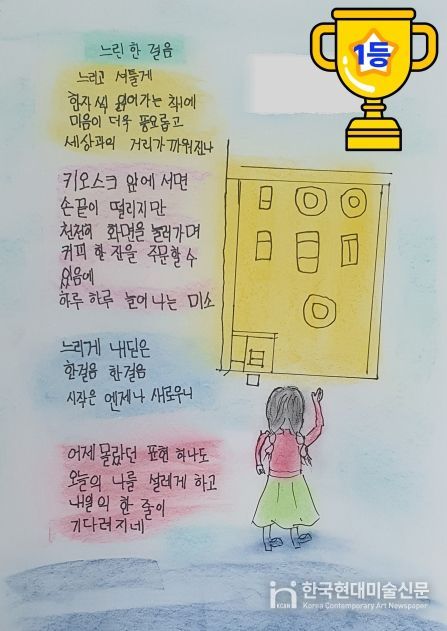 느린 한 걸음
느리고 서툴게
한자 씩 읽어가는 책에
마음이 더욱 풍요롭고
세상과의 거리가 까워진다
키오스크 앞에 서면
손끝이 떨리지만
천천히 화면을 눌러가며
커피 한 잔을 주문할 수
있음에
하루 하루 늘어 나는 미소
느리게 내딛은
한걸음 한걸음
시작은 언제나 새로우니
어제 몰랐던 표현 하나도
오늘의 나를 설레게 하고
내일의 한 줄이
기다려지네
1등
KCAN
한국현대미술신문
Korea Contemporary Art Newspaper